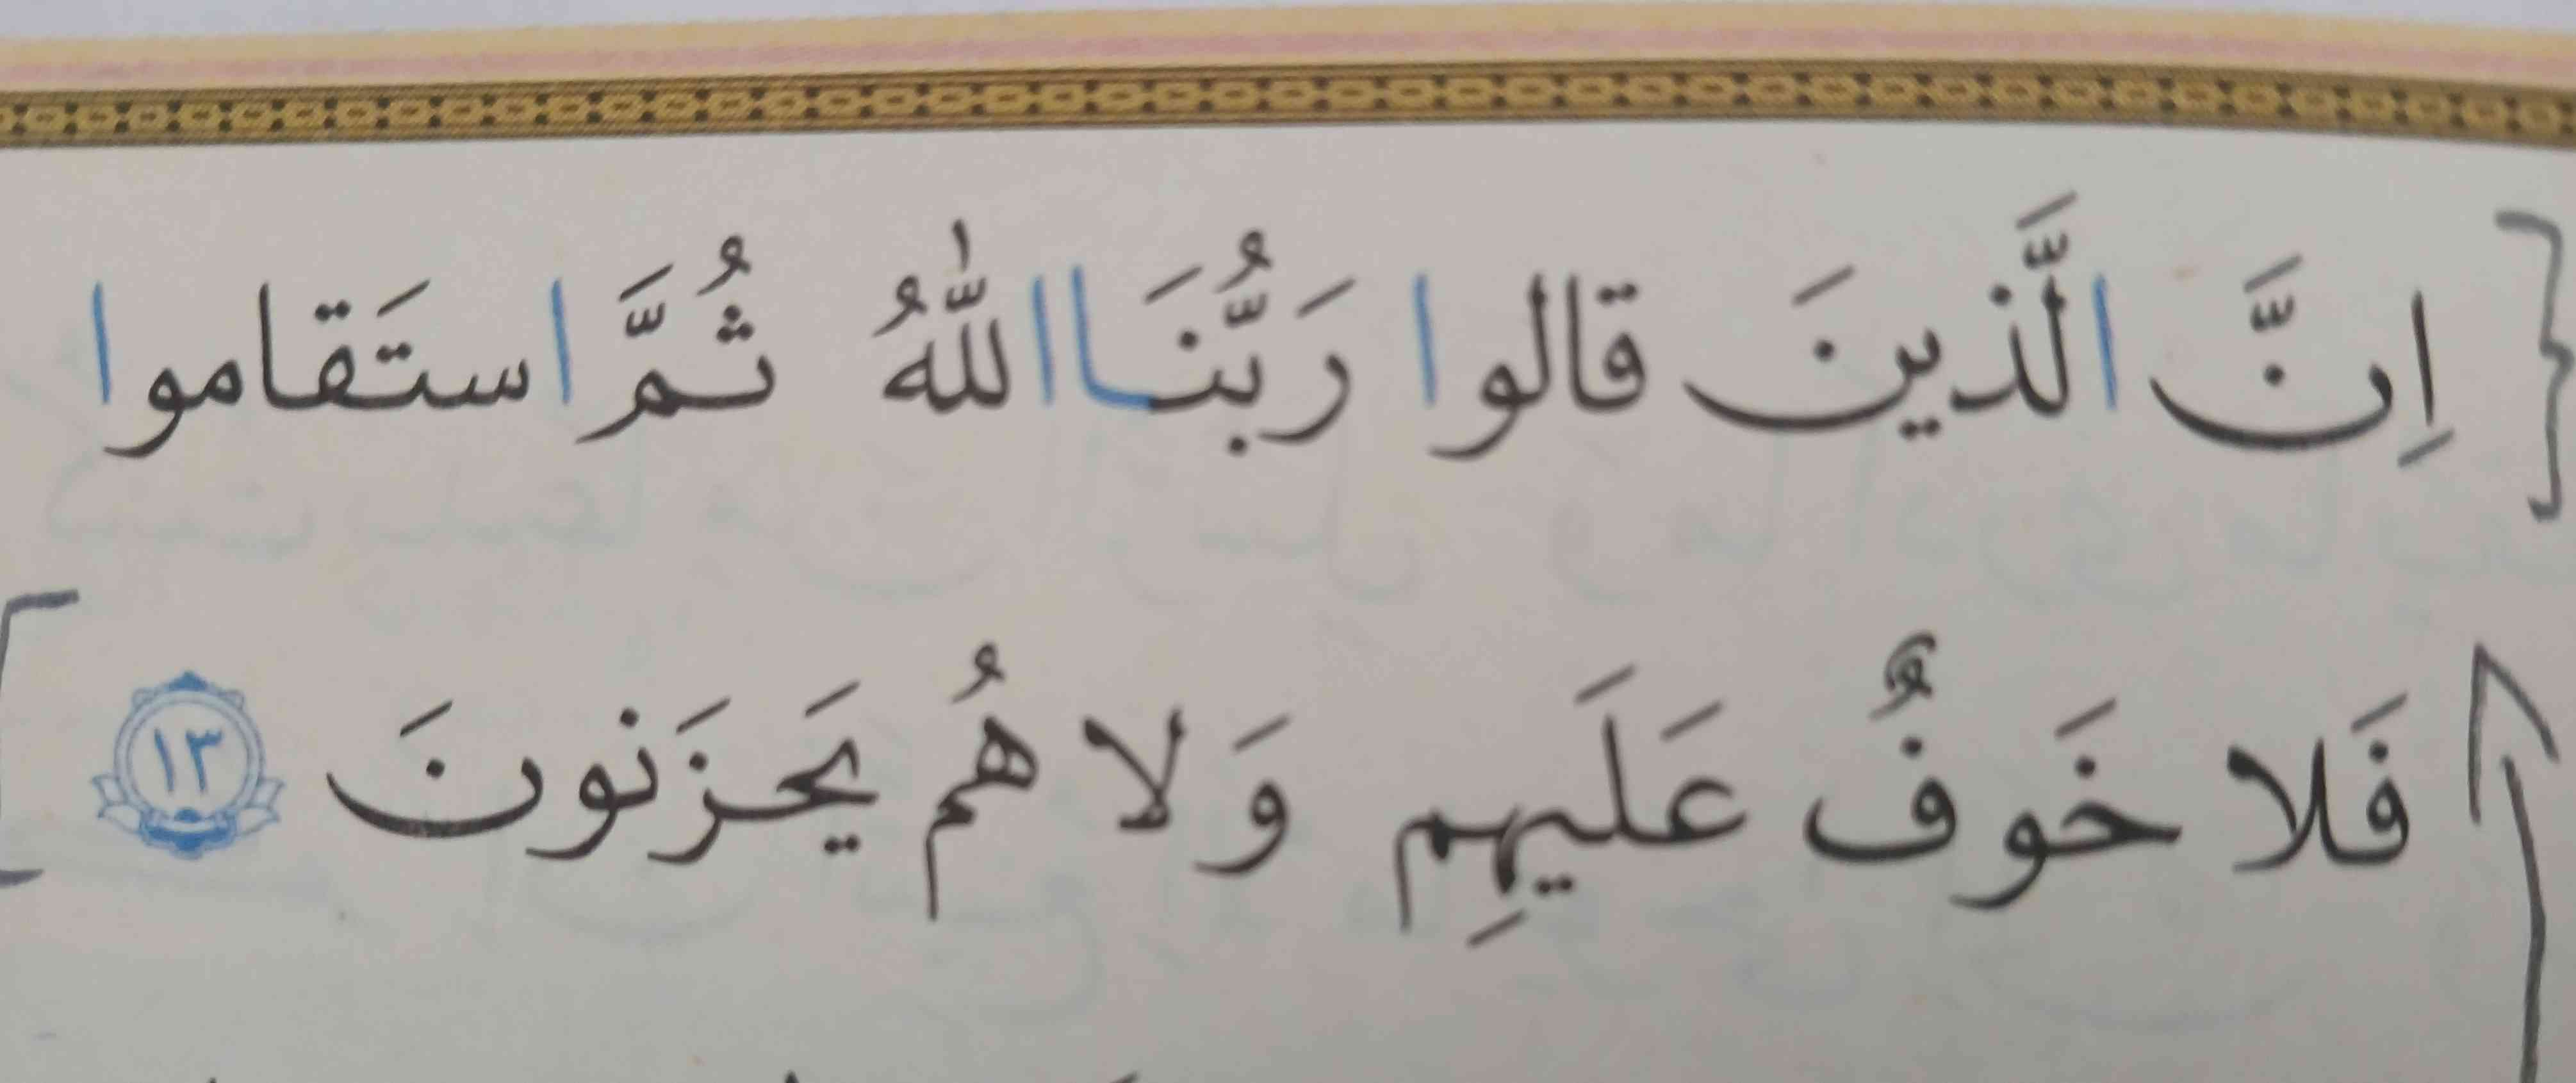 اِنَّ الَّذينَ قالوا رَبُّنَا اللّٰهُ ثُمَّ استَقاموا
فَلا خَوفٌ عَلَيهِم وَلا هُم يَحزَنونَ ١٣